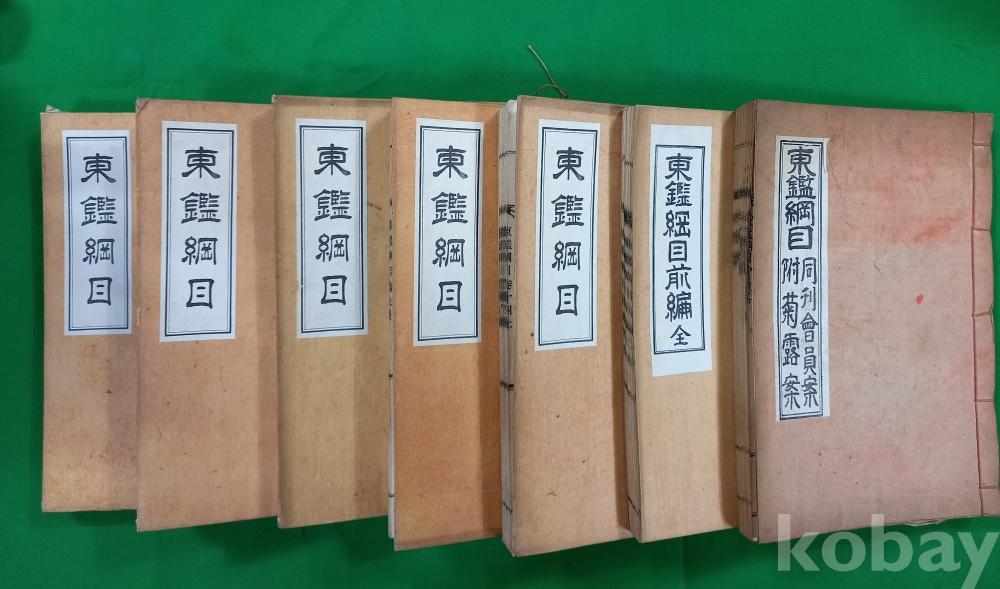 東鑑綱目
東鑑綱目
東鑑綱目
東鑑綱目
東鑑綱目
東鑑綱目前編 全
東鑑綱目
同刊會員案
附菊露案
kobay